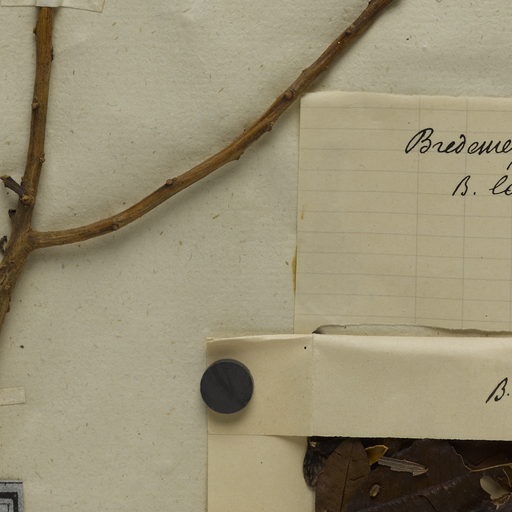 Bredeme
B. lo
B.